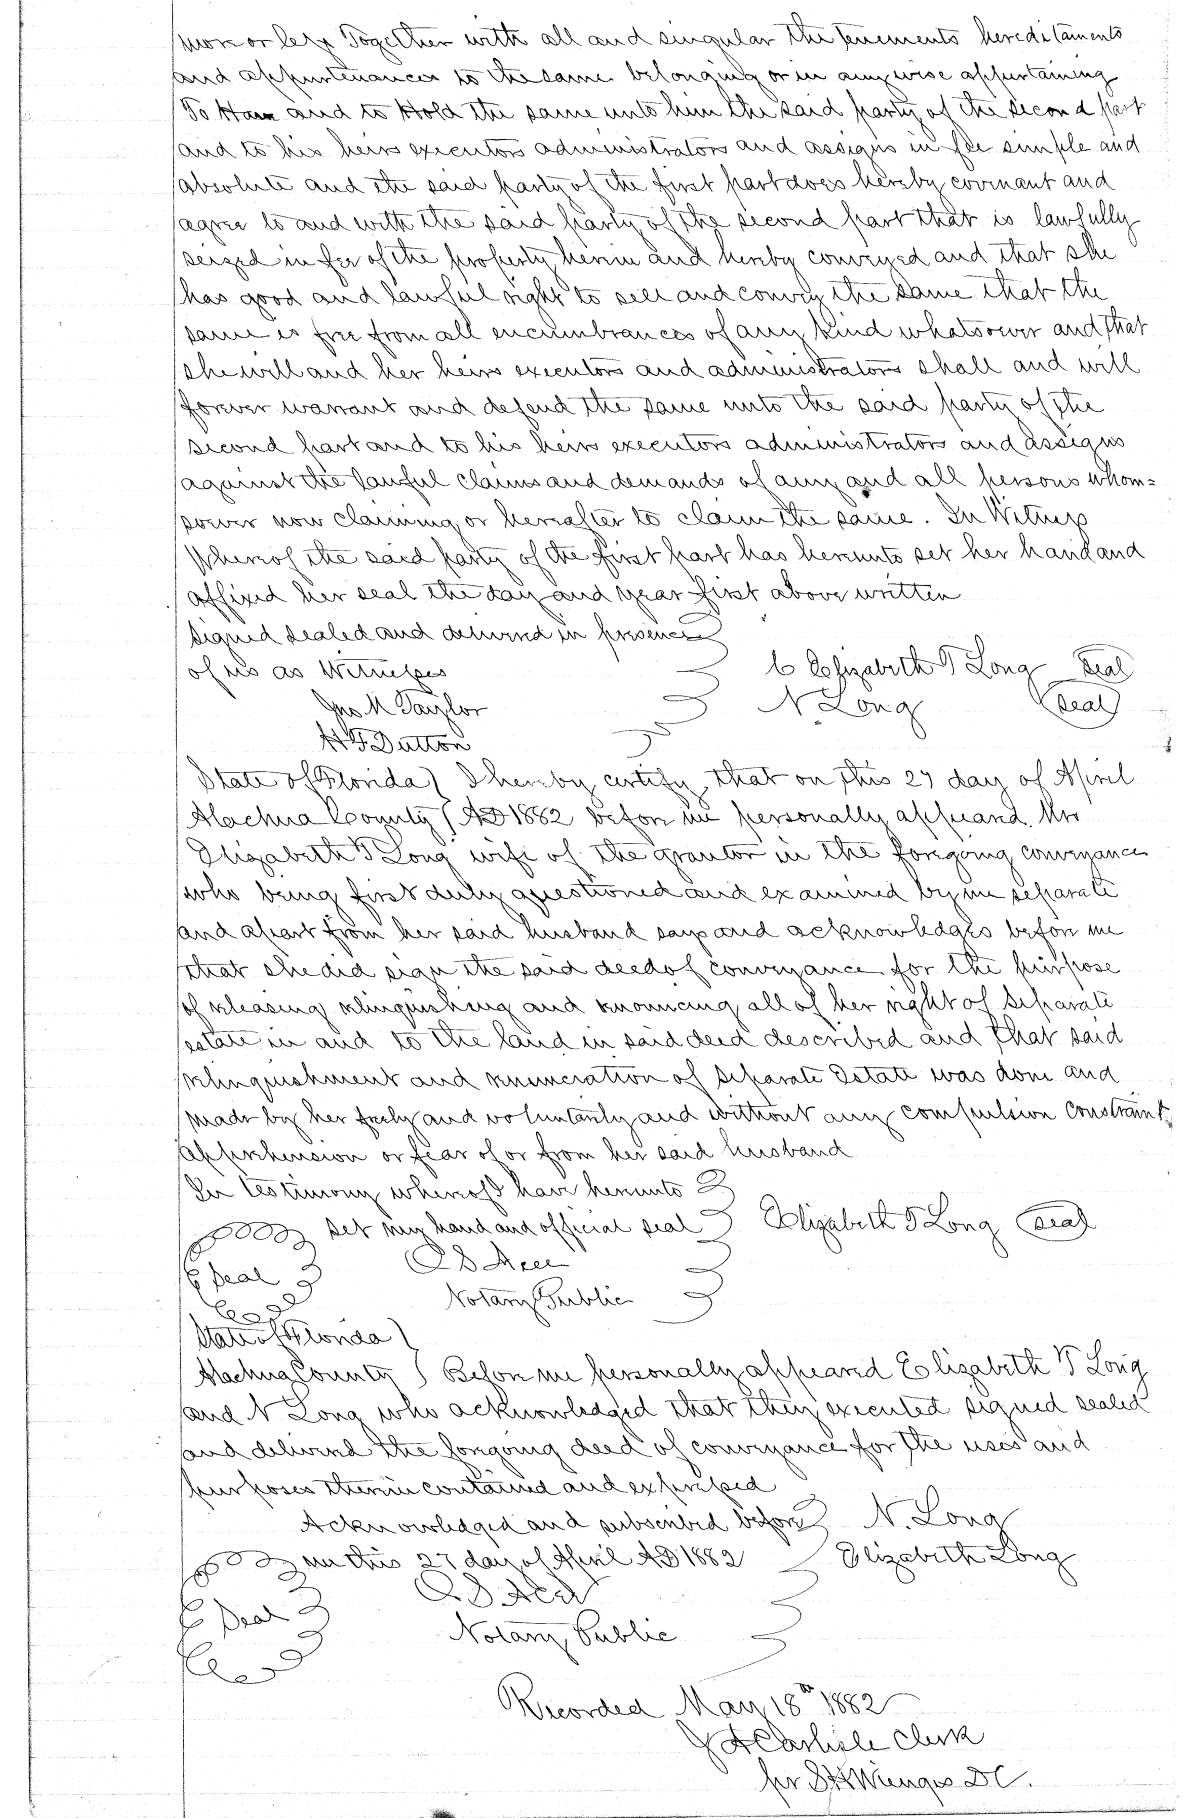 more or less Together with all and singular the tenements hereditaments
and appurtenances to the same belonging or in anywise appertaining
To Have and to Hold the same unto him the said party of the second part
and to his heirs executors administrators and assigns in fee simple and
absolute and the said party of the first part does hereby covenant and
agree to and with the said party of the second part that is lawfully
seized in fee of the property herein and hereby conveyed and that she
has good and lawful right to sell and convey the same that the
same is free from all encumbrances of any kind whatsoever and that
she will and her heirs executors and administrators shall and will
forever warrant and defend the same unto the said party of the
second part and to his heirs executors administrators and assigns
against the lawful claims and demands of any and all persons whom=
soever now claiming or hereafter to claim the same. In Witness
Whereof the said party of the first part has hereunto set her hand and
affixed her seal the day and year first above written
Signed sealed and delivered in presence
of us as Witnesses Elizabeth T Long Seal
Jno M Taylor N. Long Seal
H F Dutton
State of Florida } I hereby certify that on this 27 day of April
Alachua County } AD 1882 before me personally appeard Mrs
Elizabeth T Long wife of the grantor in the foregoing conveyance
who being first duly questioned and examined by me separate
and apart from her said husband says and acknowledges before me
that she did sign the said deed of conveyance for the purpose
of releasing relinquishing and renouncing all of her right of separate
estate in and to the land in said deed described and that said
relinquishment and renunciation of separate Estate was done and
made by her freely and voluntarily and without any compulsion constraint
apprehension or fear of or from her said husband
In testimony whereof I have hereunto
set my hand and official seal Elizabeth T Long Seal
Seal
Notary Public
State of Florida }
Alachua County } Before me personally appeared Elizabeth T Long
and N Long who acknowledged that they executed signed sealed
and delivered the foregoing deed of conveyance for the uses and
purposes therein contained and expressed
Acknowledged and subscribed before N. Long
me this 27 day of April AD 1882 Elizabeth Long
Seal
Notary Public
Recorded May 18th 1882
J A Carlisle Clerk
per DC.